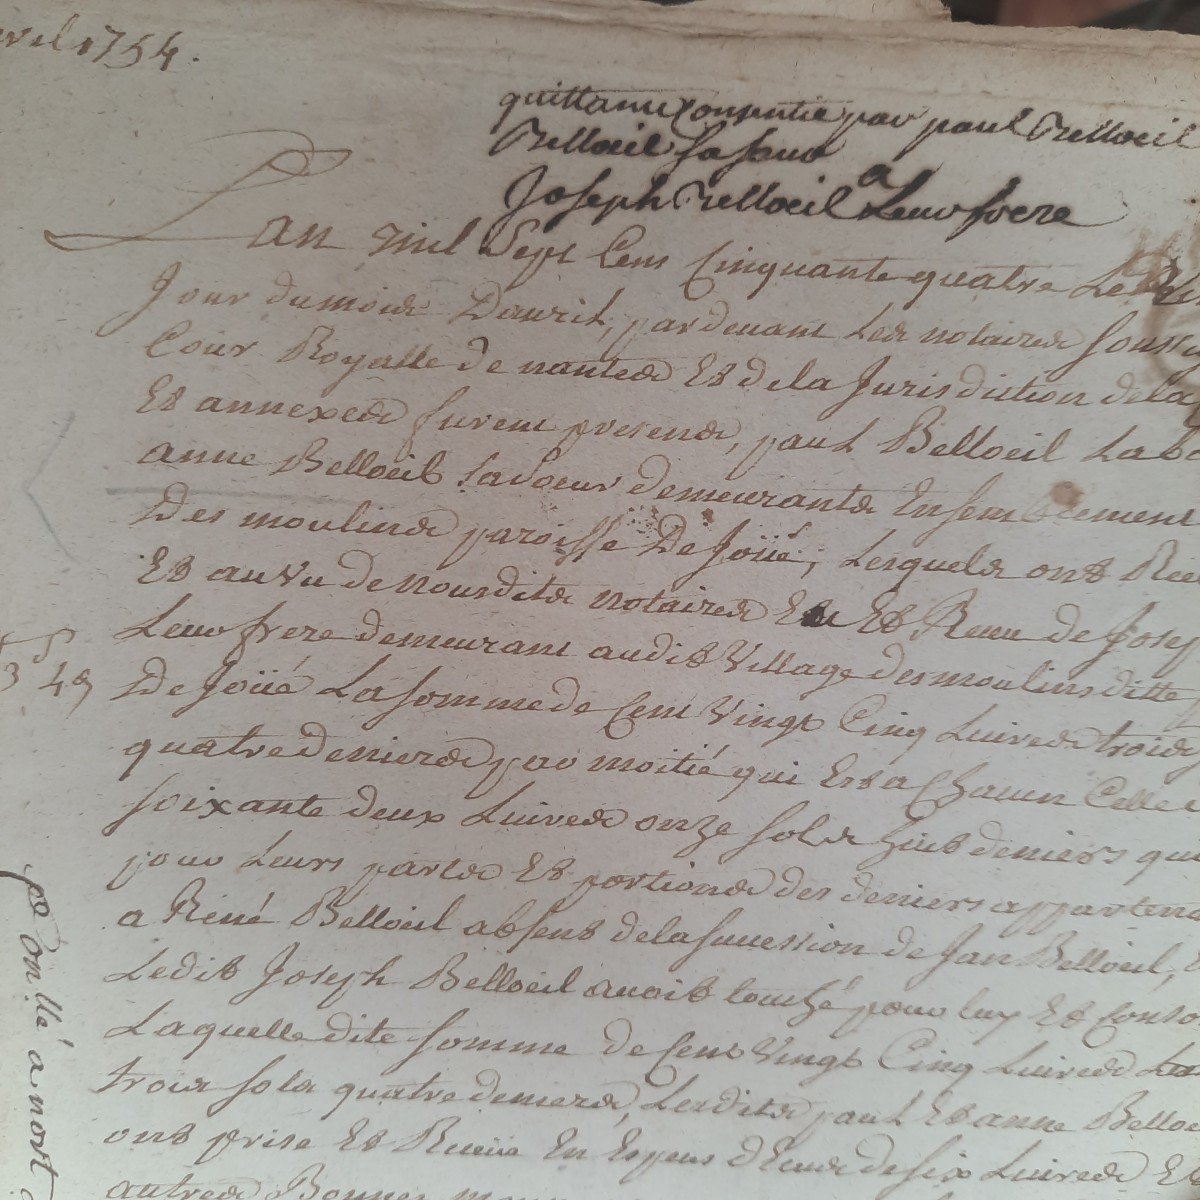 avril 1754.
quittance consentie par paul Belloeil
Belloeil sa soeur
a
Joseph Belloeil Leur frere
Lan mil Sept Cens Cinquante quatre Le
Jour du mois Dauril, par devant Les notaires
Cour Royalle de nantes Et de la Jurisdiction de la
Et annexes furent presens, paul Belloeil
anne Belloeil sa soeur demeurants Ensemblement
Des moulins paroisse De Joüé, Lesquels ont
Et au Vu de nousdits notaires Eu Et Recu de
Leur frere demeurant audit Village des moulins ditte
De Joüé La somme de Cent Vingt Cinq Livres trois
3 4
quatre deniers par moitié qui Est a Chacun Celle
soixante deux Livres onze sols huit deniers
pour Leurs partes Et portions des deniers
a René Belloeil absent de la succession de Jan Belloeil,
Ledit Joseph Belloeil avoit touché pour luy Et
Laquelle dite somme de Cent Vingt Cinq Livres
trois sols quatre deniers, Lesdits paul Et anne
ont prise Et Receüe En Espens d'Ecus de six Livres Et
autres Bonnes
a nort